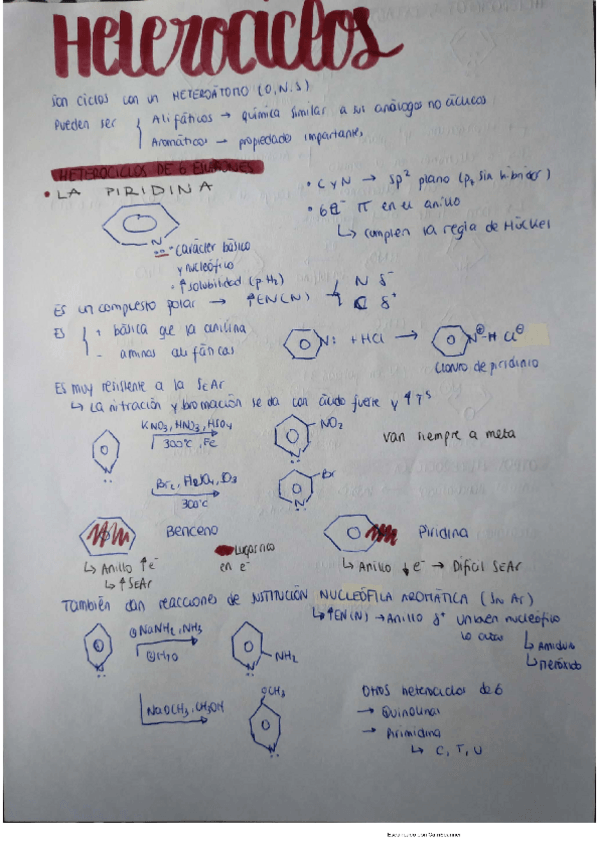 Heterociclos
Son ciclos con un HETEROÁTOMO (O, N, S)
Pueden ser { Alifáticos → química similar a sus análogos no cíclicos
Aromáticos → propiedades importantes
HETEROCICLOS DE 6 ESLABONES
• LA PIRIDINA
• C y N → sp² plano (p₂ sin hibridar)
• 6e⁻ π en el anillo
↳ cumplen la regla de Hückel
N
• Carácter básico
y nucleófico
• ↑ solubilidad (p. H₂)
Es un compuesto polar → ↑EN(N) → N δ⁻
C δ⁺
Es { + básica que la anilina
- aminas alifáticas
N: + HCl → N⊕-H Cl⊖
Cloruro de piridinio
Es muy resistente a la SEAr
↳ La nitración y bromación se da con ácido fuerte y ↑ Tªs
KNO₃, HNO₃, H₂SO₄
300ºC, Fe
NO₂
N
van siempre a meta
Br₂, H₂SO₄, SO₃
300ºC
Br
N
Benceno
Piridina
↳ Anillo ↑e⁻
↳ ↑SEAr
Lugar rico
en e⁻
↳ Anillo ↓e⁻ → Difícil SEAr
También dan reacciones de SUSTITUCIÓN NUCLEÓFILA AROMÁTICA (SNAr)
↳ ↑EN(N) → Anillo δ⁺ un buen nucleófico
lo ataca
↳ Amiduro
↳ Metóxido
① NaNH₂, NH₃
② H₂O
NH₂
N
NaOCH₃, CH₃OH
OCH₃
N
Otros heterociclos de 6
→ Quinolinas
→ Pirimidina
↳ C, T, U
Escaneado con CamScanner